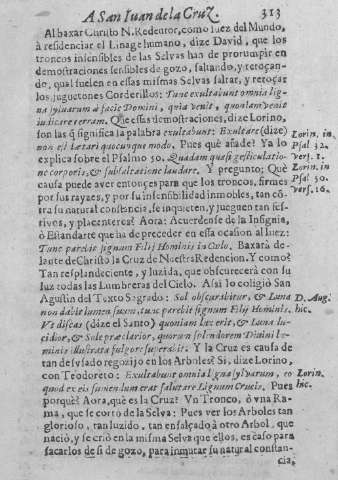 A San Iuan de la Cruz. 313
Al baxar Christo N. Redentor, como Iuez del Mundo,
à residenciar el Linage humano, dize David, que los
troncos insensibles de las Selvas han de prorumpir en
demostraciones sensibles de gozo, saltando, y retoçan-
do, qual suelen en essas mismas Selvas saltar, y retoçar
los juguetones Corderillos: Tunc exultabunt omnia lig-
na sylvarum à facie Domini, quia venit, quoniam venit
iudicare terram. Que essas demostraciones, dize Lorino,
son las q̃ significa la palabra exultabunt: Exultare (dize)
non est lætari quocunque modo. Pues què añade? Ya lo
explica sobre el Psalmo 50. Quadam quasi gesticulatio-
ne corporis, & subsaltatione laudare. Y pregunto; Què
causa puede aver entonces para que los troncos, firmes
por sus rayzes, y por su insensibilidad inmobles, tan cõ-
tra su natural consistencia, se inquieten, y jueguen tan fes-
tivos, y placenteros? Aora: Acuerdense de la Insignia,
ò Estandarte que ha de preceder en essa ocasion al Iuez:
Tunc parebit signum Filij Hominis in Cœlo. Baxarà de-
lante de Christo la Cruz de Nuestra Redencion. Y como?
Tan resplandeciente, y luzida, que obscurecerà con su
luz todas las Lumbreras del Cielo. Assi lo coligiò San
Agustin del Texto Sagrado: Sol obscurabitur, & Luna
non dabit lumen suum, tunc parebit signum Filij Hominis.
Vt discas (dize el Santo) quoniam lux erit, & Luna lu-
cidior, & Sole præclarior, quorum splendorem Divini lu-
minis illustrata fulgore superabit. Y la Cruz es causa de
tan desusado regozijo en los Arboles? Si, dize Lorino,
con Teodoreto: Exultabunt omnia ligna sylvarum, eo
quod ex eis sumendum erat salutare Lignum Crucis. Pues
porquè? Aora, què es la Cruz? Vn Tronco, ò vna Ra-
ma, que se cortò de la Selva: Pues ver los Arboles tan
glorioso, tan luzido, tan ensalçado à otro Arbol, que
naciò, y se criò en la misma Selva que ellos, es caso para
sacarlos de si de gozo, para inmutar su natural constan-
cia,
Lorin. in
Psal. 32.
vers. 1.
Lorin. in
Psal. 50.
vers. 16.
D. Aug.
hic.
Lorin.
hic.